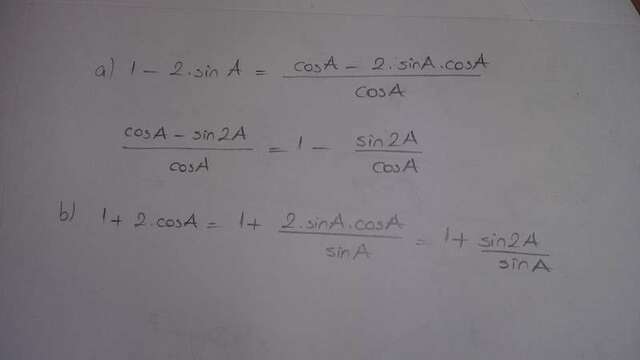 a) 1 - 2.sin A = (cosA - 2.sinA.cosA) / cosA
(cosA - sin2A) / cosA = 1 - sin2A / cosA
b) 1 + 2.cosA = 1 + (2.sinA.cosA) / sinA = 1 + sin2A / sinA